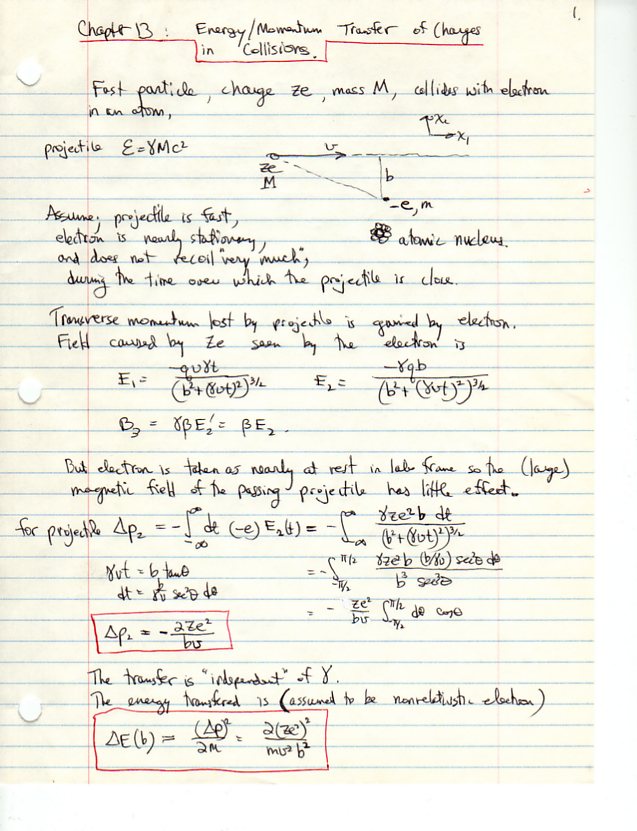 1.
Chapter 13: Energy/Momentum Transfer of Charges
in Collisions.
Fast particle, charge ze, mass M, collides with electron
in an atom,
x₂
x₁
projectile ℰ=γMc²
v
ze
M
b
-e, m
Assume; projectile is fast,
electron is nearly stationary,
atomic nucleus.
and does not recoil "very much",
during the time over which the projectile is close.
Transverse momentum lost by projectile is gained by electron.
Field caused by ze seen by the electron is
E₁ = -qvγt/(b²+(γvt)²)^{3/2} E₂ = -γqb/(b²+(γvt)²)^{3/2}
B₃ = γβE₂' = βE₂.
But electron is taken as nearly at rest in lab frame so the (large)
magnetic field of the passing projectile has little effect.
for projectile Δp₂ = -∫_{-∞}^{∞} dt (-e) E₂(t) = -∫_{-∞}^{∞} γze²b dt/(b²+(γvt)²)^{3/2}
γvt = b tanθ
= -∫_{-π/2}^{π/2} γze²b (b/γv) sec²θ dθ/b³ sec³θ
dt = b/γv sec²θ dθ
= - ze²/bv ∫_{-π/2}^{π/2} dθ cosθ
Δp₂ = - 2ze²/bv
The transfer is "independent" of γ.
The energy transferred is (assumed to be nonrelativistic electron)
ΔE(b) = (Δp)²/2m = 2(ze²)²/mv²b²